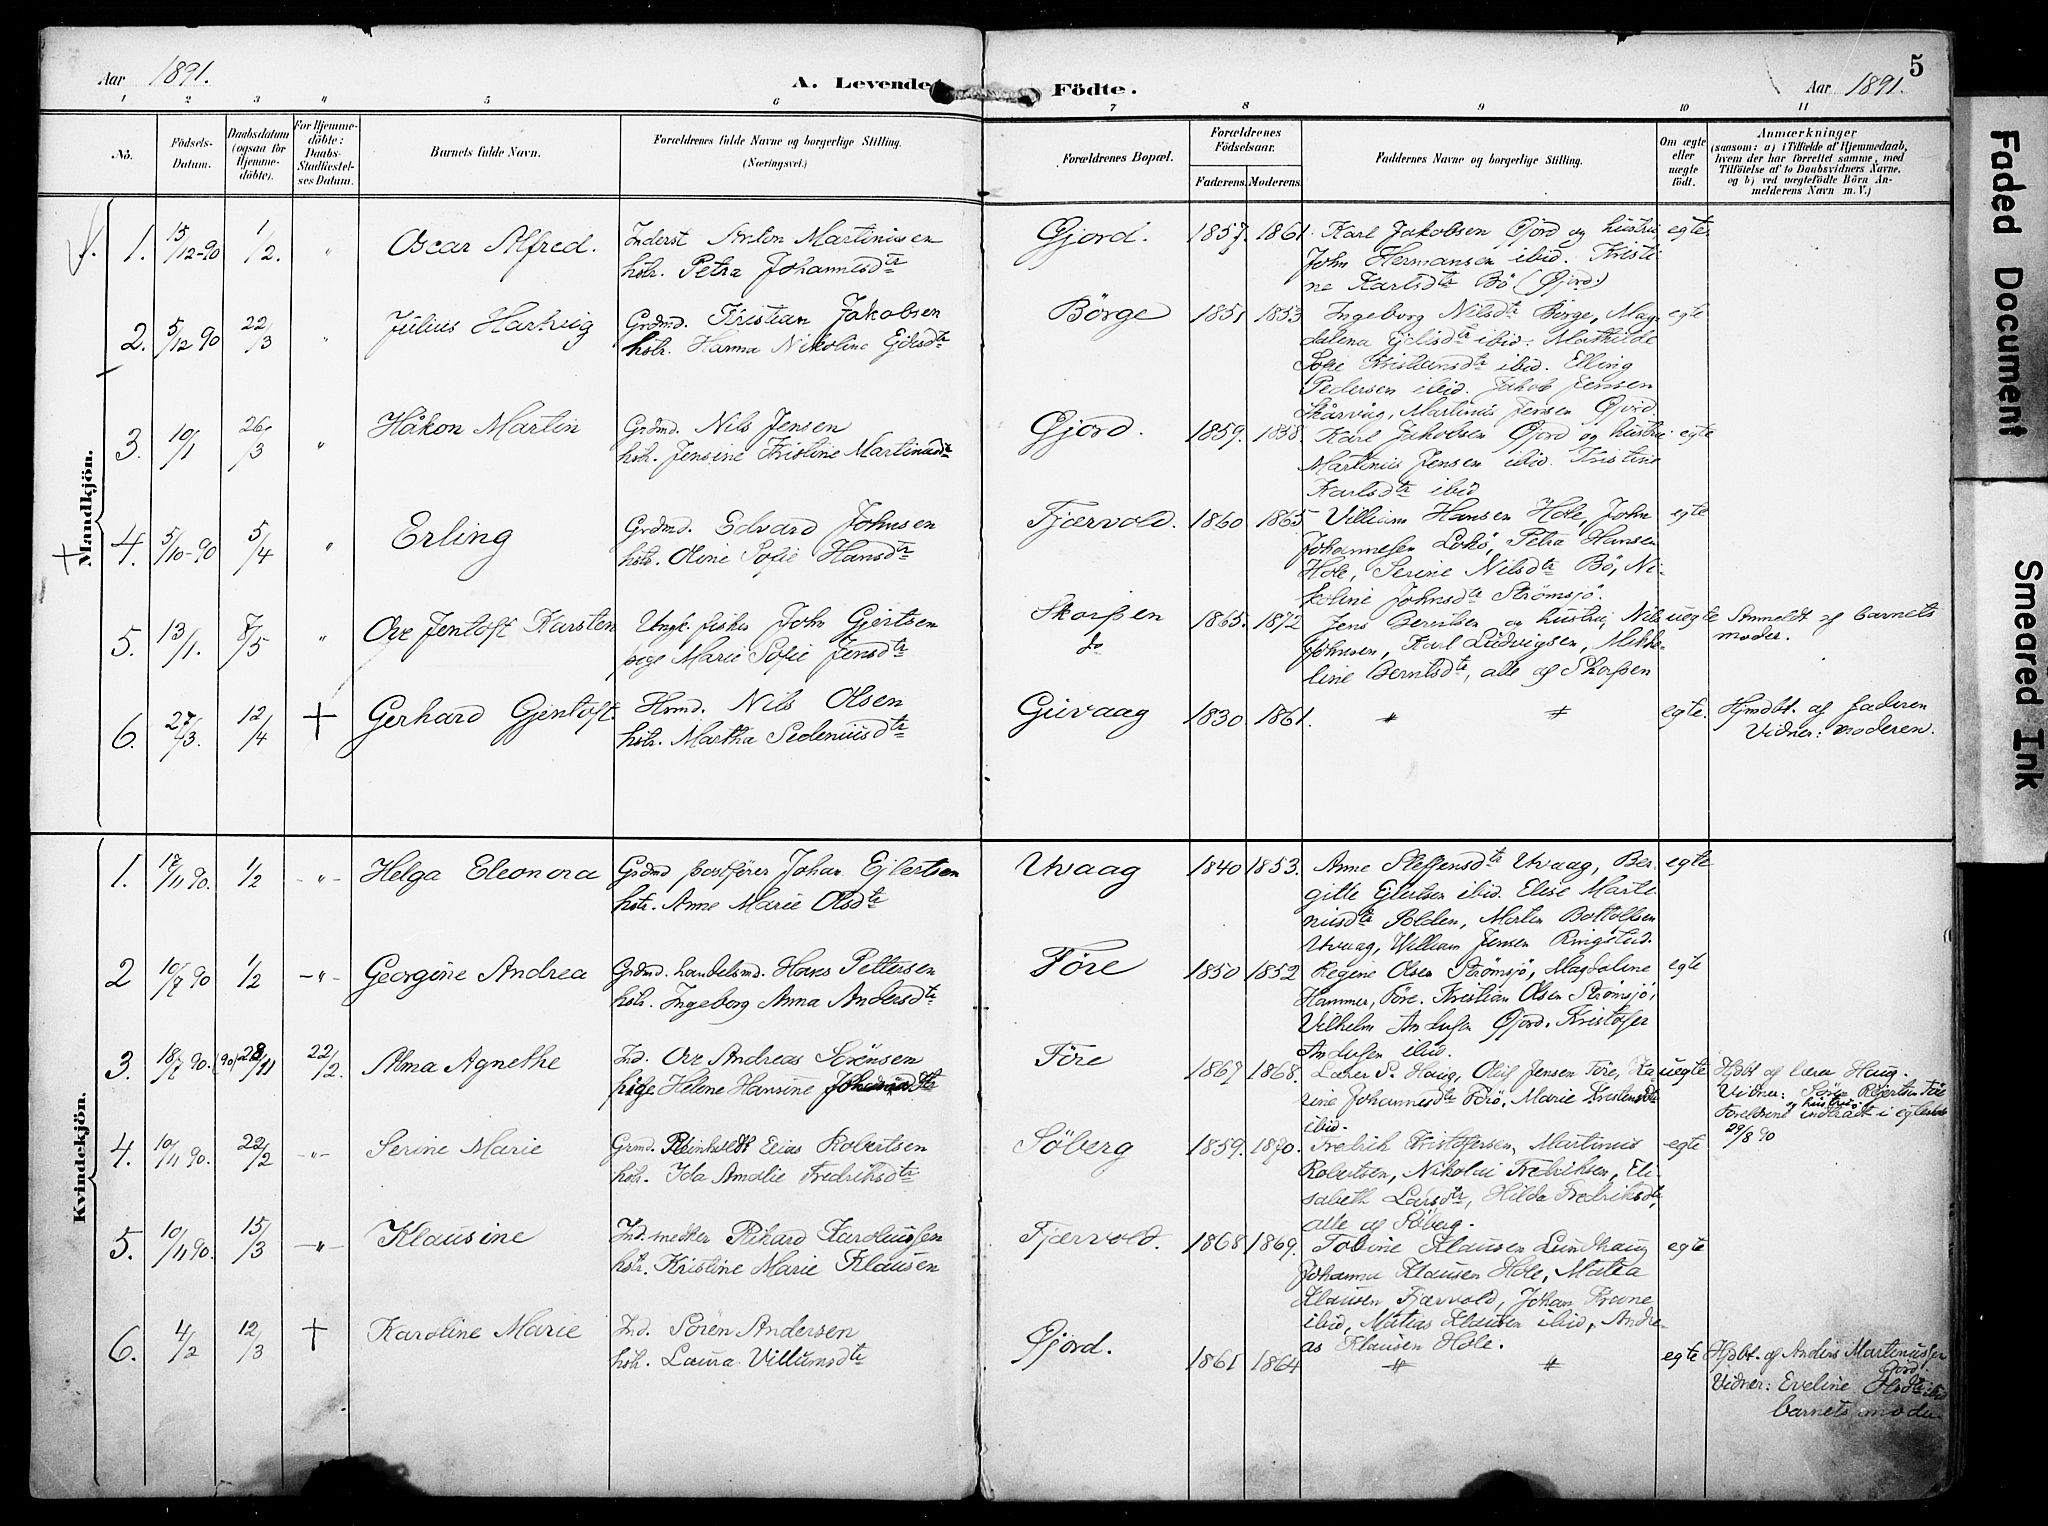 Aar 1891.
A. Levende Födte.
Aar 1891.
5
1 2 3 4 5 6 7 8 9 10 11
No.
Födsels-Datum.
Daabsdatum (ogsaa for Hjemme-döbte).
For Hjemme-döbte: Daabs-Stadfæstel-ses Datum.
Barnets fulde Navn.
Forældrenes fulde Navne og borgerlige Stilling. (Næringsvei.)
Forældrenes Bopæl.
Forældrenes Födselsaar.
Faderens. Moderens.
Faddernes Navne og borgerlige Stilling.
Om ægte eller uægte födt.
Anmærkninger
(saasom: a) i Tilfælde af Hjemmedaab, hvem der har forrettet samme, med Tilföielse af to Daabsvidners Navne, og b) ved uægtefödte Börn An-melderens Navn m. V.)
Mandkjön.
1. 15/12-90 1/2. " Oscar Alfred.
Inderst Anton Martinusen
hstr. Petra Johannesdtr
Gjord. 1857. 1861.
Karl Jakobsen Gjord og hustru
John Hermansen ibid. Kristi-
ne Karlsdtr Bö (Gjord.)
egte.
2. 5/12 90 22/3 " Julius Hartvig
Grdmd. Kristian Jakobsen
hstr. Hanna Nikoline Ejlisdtr
Börge 1851 1853
Ingeborg Nilsdtr Börge, Mag-
dalena Ejlisdtr ibid. Mathilde
Sofie Kristiansdtr ibid. Elling
Pedersen ibid. Jakob Jensen
Skårvåg, Martinus Jensen Gjord.
egte
3. 10/1 26/3 " Håkon Martin
Grdmd. Nils Jensen
hstr. Jensine Kristine Martinusdtr
Gjord. 1859. 1858.
Karl Jakobsen Gjord og hustru
Martinus Jensen ibid. Kristine
Karlsdtr ibid
egte
4. 5/10-90 5/4 " Erling
Grdmd. Edvard Johnsen
hstr. Oline Sofie Hansdtr
Fjærvold. 1860 1865
Villiam Hansen Hole, John
Johannesen Lokö, Petra Hansen
Hole, Serine Nilsdtr Bö, Ni-
koline Johnsdtr Strömsjö.
egte
5. 13/1. 7/5 " Ove Jentoft Karsten
Ungk. fisker John Gjertsen
pige Marie Sofie Jensdtr
Skorpen
do
1865. 1872
Jens Berntsen og hustru, Nils
Johnsen, Karl Ludvigsen, Mikke-
line Berntsdtr, alle af Skorpen
uegte
Anmeldt af barnets
moder.
6. 27/3. 12/4 + Gerhard Gjentoft
Hsmd. Nils Olsen
hstr. Martha Sedeniusdtr
Guvaag 1830. 1861. " "
egte.
Hjmdbt. af faderen
Vidner: moderen.
Kvindekjön.
1. 17/11 90. 1/2 -"- Helga Eleonora
Grdmd postfører Johan Ejlertsen
hstr. Anne Marie Olsdtr
Uvaag 1840 1853.
Anne Steffensdtr Uvaag, Ber-
gitte Ejlertsen ibid. Elise Marti-
nusdtr Solden, Martin Bottolfsen
Uvaag, William Jensen Ringstad.
egte
2 10/7 90 1/2 -"- Georgine Andrea
Grdmd. handelsmd. Hans Pettersen
hstr. Ingeborg Anna Andersdtr
Före 1850 1852
Regine Olsen Strömsjö, Magdaline
Hammer, Före. Kristian Olsen Strömsjö,
Vilhelm Andersen Gjord. Kristofer
Andersen ibid.
egte
3. 18/7 90. (90) 28/11 22/2. Alma Agnethe
Ind. Ove Andreas Sörensen
pige Helene Hansine
Före 1867 1868.
Lærer P. Haug, Oluf Jensen Före, Ka-
rine Johannesdtr Förö. Marie Kristensdtr
ibid.
uegte
Hjdbt af lærer Haug.
Vidner: Sören Rejertsen Före
og hustru.
Forældrene indtrådt i egteskab
29/8 90
4. 10/11 90. 22/2 -"- Serine Marie
Grmd. Reinholdt Elias Robertsen
hstr. Ida Amalie Fredriksdtr
Söberg 1859. 1870.
Fredrik Kristoffersen, Martinus
Robertsen, Nikolai Fredriksen, Eli-
sabeth Larsdtr, Hilda Fredriksdtr,
alle af Söberg.
egte
5. 10/11 90. 15/3 -"- Klausine
Ind. medker Rikard Karoliussen
hstr. Kristine Marie Klausen
Fjærvold. 1868 1869.
Tobine Klausen Lundhaug
Johanna Klausen Hole, Matea
Klausen Fjærvold, Johan Frane
ibid, Matias Klausen ibid, Andre-
as Klausen Hole.
egte
6. 4/2 12/3 + Karoline Marie
Ind. Sören Andersen
hstr. Laura Villumsdtr
Gjord. 1861 1864 " "
egte
Hjdbt. af Anders Martinussen
Gjord.
Vidner: Eveline ibid
barnets moder.
Faded Document
Smeared Ink